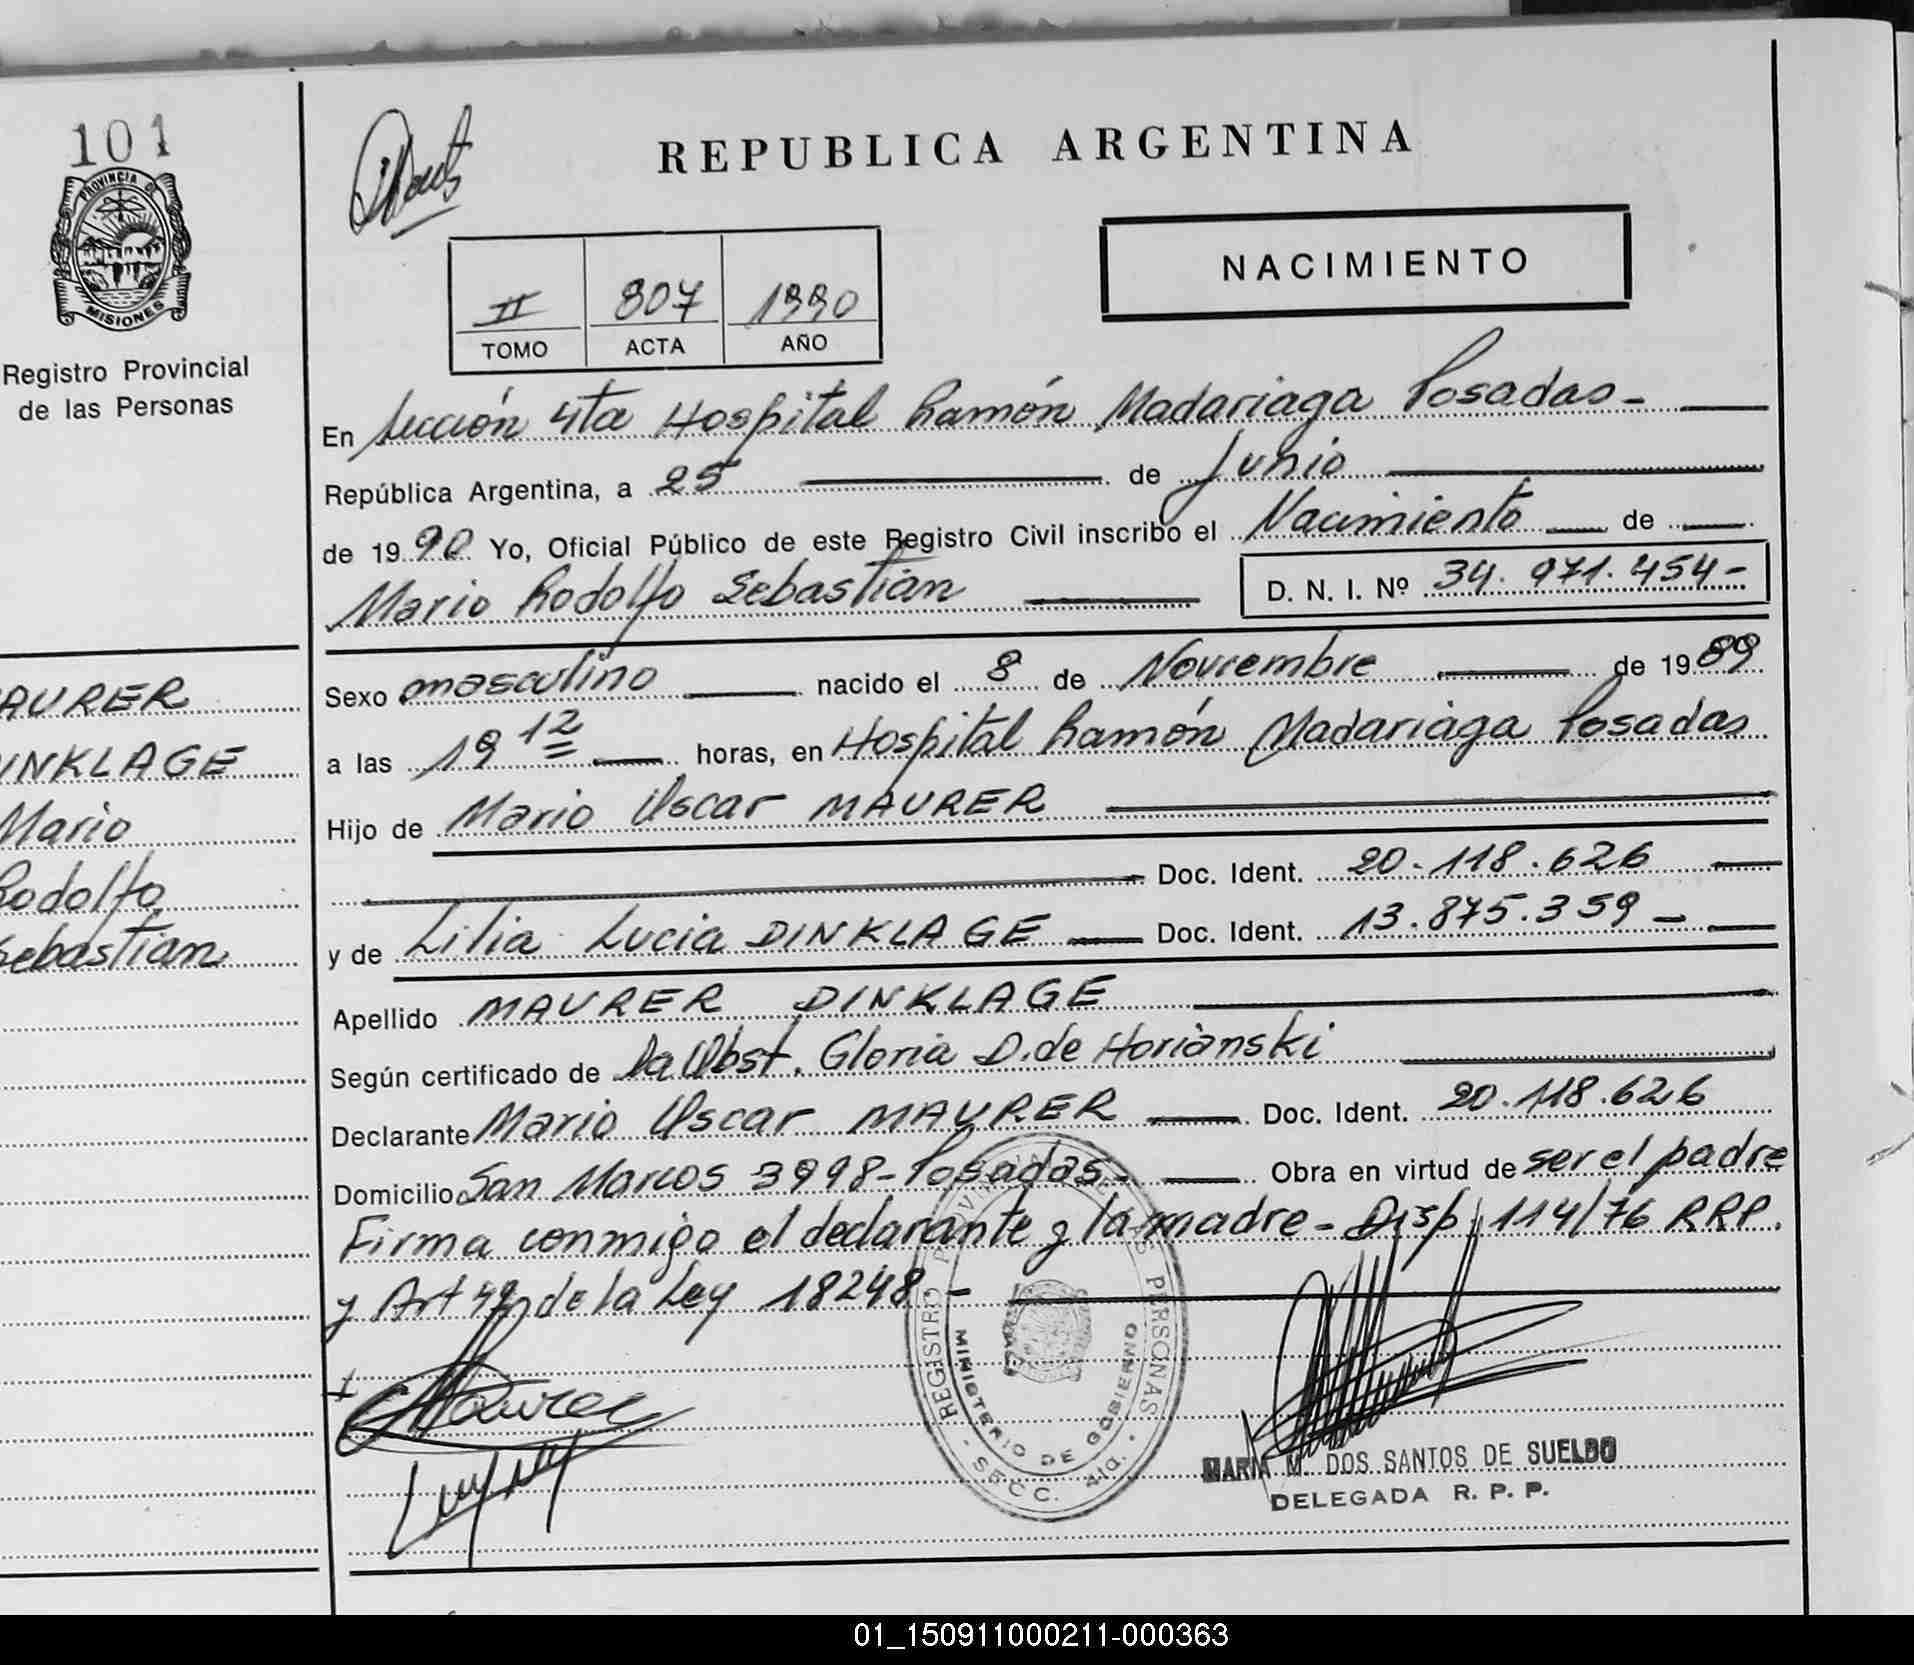 101
PROVINCIA DE
MISIONES
Registro Provincial
de las Personas
AURER
INKLAGE
Mario
Rodolfo
Sebastian
REPUBLICA ARGENTINA
NACIMIENTO
II 807 1990
TOMO ACTA AÑO
En Sección 4ta Hospital Ramón Madariaga Posadas-
República Argentina, a 25 de Junio
de 1990 Yo, Oficial Público de este Registro Civil inscribo el Nacimiento de
Mario Rodolfo Sebastian D. N. I. Nº 34.971.454-
Sexo masculino nacido el 8 de Noviembre de 1989
a las 19 12 horas, en Hospital Ramón Madariaga Posadas
Hijo de Mario Oscar MAURER
Doc. Ident. 20.118.626
y de Lilia Lucia DINKLAGE Doc. Ident. 13.875.359-
Apellido MAURER DINKLAGE
Según certificado de la Obst. Gloria D. de Horianski
Declarante Mario Oscar MAURER Doc. Ident. 20.118.626
Domicilio San Marcos 3998-Posadas- Obra en virtud de ser el padre
Firma conmigo el declarante y la madre- Disp. 114/76 RRP.
y Art 4º de la Ley 18248-
REGISTRO PROVINCIAL DE LAS PERSONAS
MINISTERIO DE GOBIERNO
- SECC. 4ta. -
MARIA M. DOS SANTOS DE SUELDO
DELEGADA R. P. P.
01_150911000211-000363